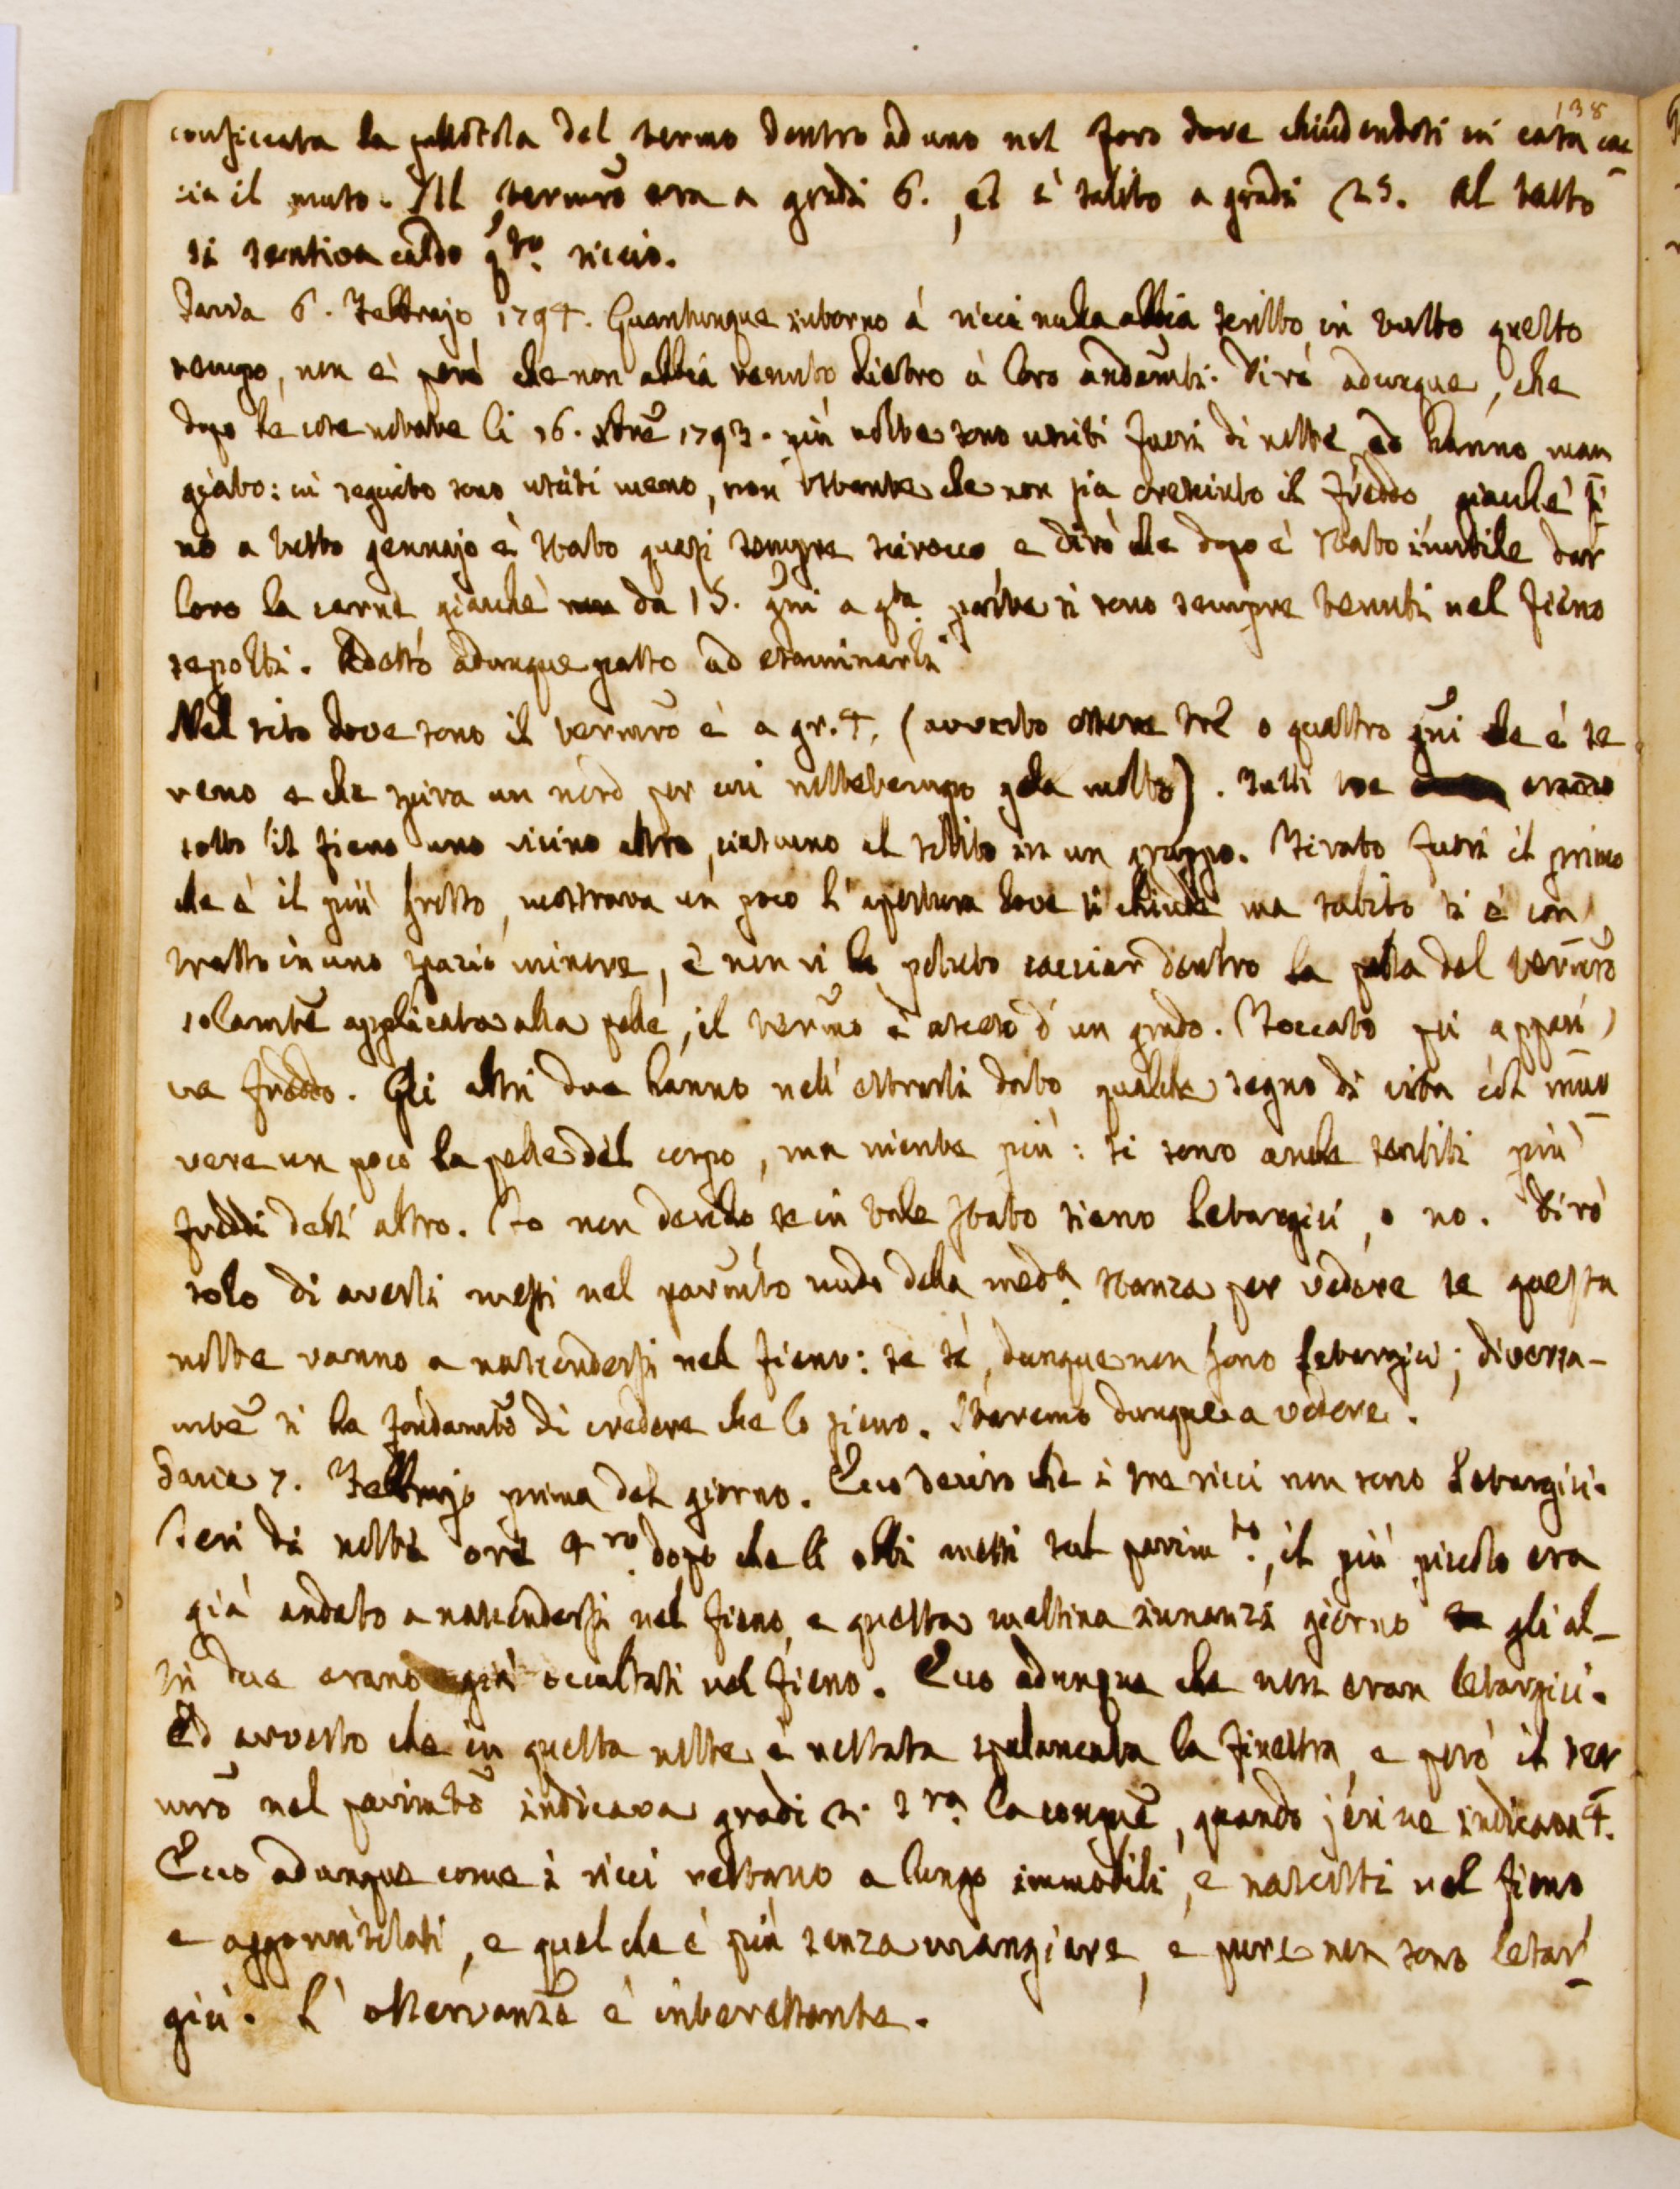 138
conficcata la pallotola del termo dentro ad uno nel foro dove chiudendosi in esta cac
cia il muso. Il termrõ era a gradi 6., ed è salito a gradi 25. Al tatto
si sentiva caldo qto. riccio.
Pavia 6. Febbrajo 1794. Quantunque intorno a' ricci nulla abbia scritto in tutto questo
tempo, non è però che non abbia tenuto dietro a' loro andam̃ti. Dirò adunque, che
dopo le cose notate li 16. Xbrẽ 1793. più volte sono usciti fuori di notte ed hanno man
giato: in seguito sono usciti meno, non ostante che non sia cresciuto il freddo giacchè fi
no a tutto gennajo è stato quasi sempre scirocco e dirò che dopo è stato inutile dar
loro la carne giacchè da 15. g̃ni a qta. parte si sono sempre tenuti nel fieno
sepolti. Adesso adunque passo ad esaminarli
Nel sito dove sono il termrõ è a gr. 4. (avverto essere tre o quattro g̃ni che è se
reno e che spira un nord per cui nottetempo gela molto). Tutti tre erano
sotto il fieno uno vicino altro, ciascuno al solito in un gruppo. Tirato fuori il primo
che è il più grosso, mostrava un poco l'apertura dove si chiude ma subito si è con
tratto in uno spazio minore, e non vi ho potuto cacciar dentro la palla del termrõ
solam̃te applicato alla pelle, il termrõ è asceso d'un grado. Toccato poi appari
va freddo. Gli altri due hanno nell'estrarli dato qualche segno di vita col muo
vere un poco la pelle del corpo, ma niente più: si sono anche sentiti più
freddi dell'altro. Io non decido se in tale stato sieno letargici, o no. Dirò
solo di averli messi nel pavim̃to nudo della meda. stanza per vedere se questa
notte vanno a nascondersi nel fieno: se sì, dunque non sono letargici; diversa-
m̃te si ha fondam̃to di credere che lo sieno. Staremo dunque a vedere.
Pavia 7. Febbrajo prima del giorno. Ecco deciso che i tre ricci non sono letargici.
Ieri di notte ore 4 ro. dopo che li ebbi messi sul pavimto., il più piccolo era
già andato a nascondersi nel fieno, e questa mattina innanzi giorno gli al-
tri due erano già occultati nel fieno. Ecco adunque che non eran letargici.
Ed avverto che in questa notte è restata spalancata la finestra, e però il ter
mrõ nel pavim̃to indicava gradi 2. sra. la congelẽ, quando jeri ne indicava 4.
Ecco adunque come i ricci restano a lungo immobili, e nascosti nel fieno
e aggomitolati, e quel che è più senza mangiare, e pure non sono letar
gici. L'osservanzẽ è interessante.